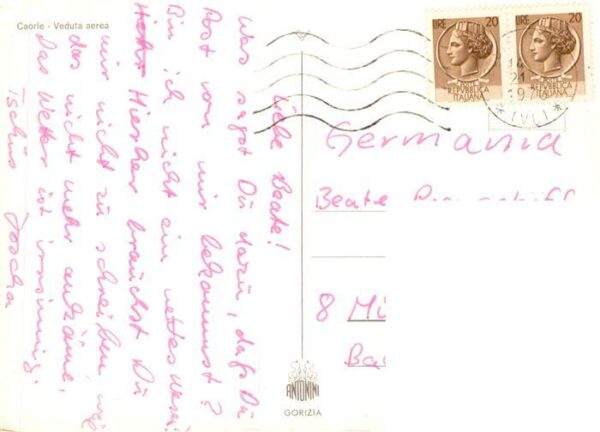 Caorle - Veduta aerea
Liebe Beate!
Was sagst Du dazu, daß Du
Post von mir bekommst?
Bin ich nicht ein nettes Wesen?
Hierher brauchst Du
mir nicht zu schreiben, weil
das nicht mehr ankäme.
Das Wetter ist irrsinnig.
Tschüs Joscha
LIRE 20
REPUBBLICA
ITALIANA
LIRE 20
REPUBBLICA
ITALIANA
Germania
Beate
8
ANTONINI
GORIZIA